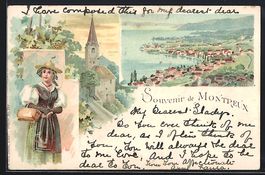 I have composed this for my dearest dear
Souvenir de Montreux
My Dearest Gladys.
Do you ever think of me
dear, as I often think of
you. You will always be dear
to me love. And I hope to be
dear to you. Your